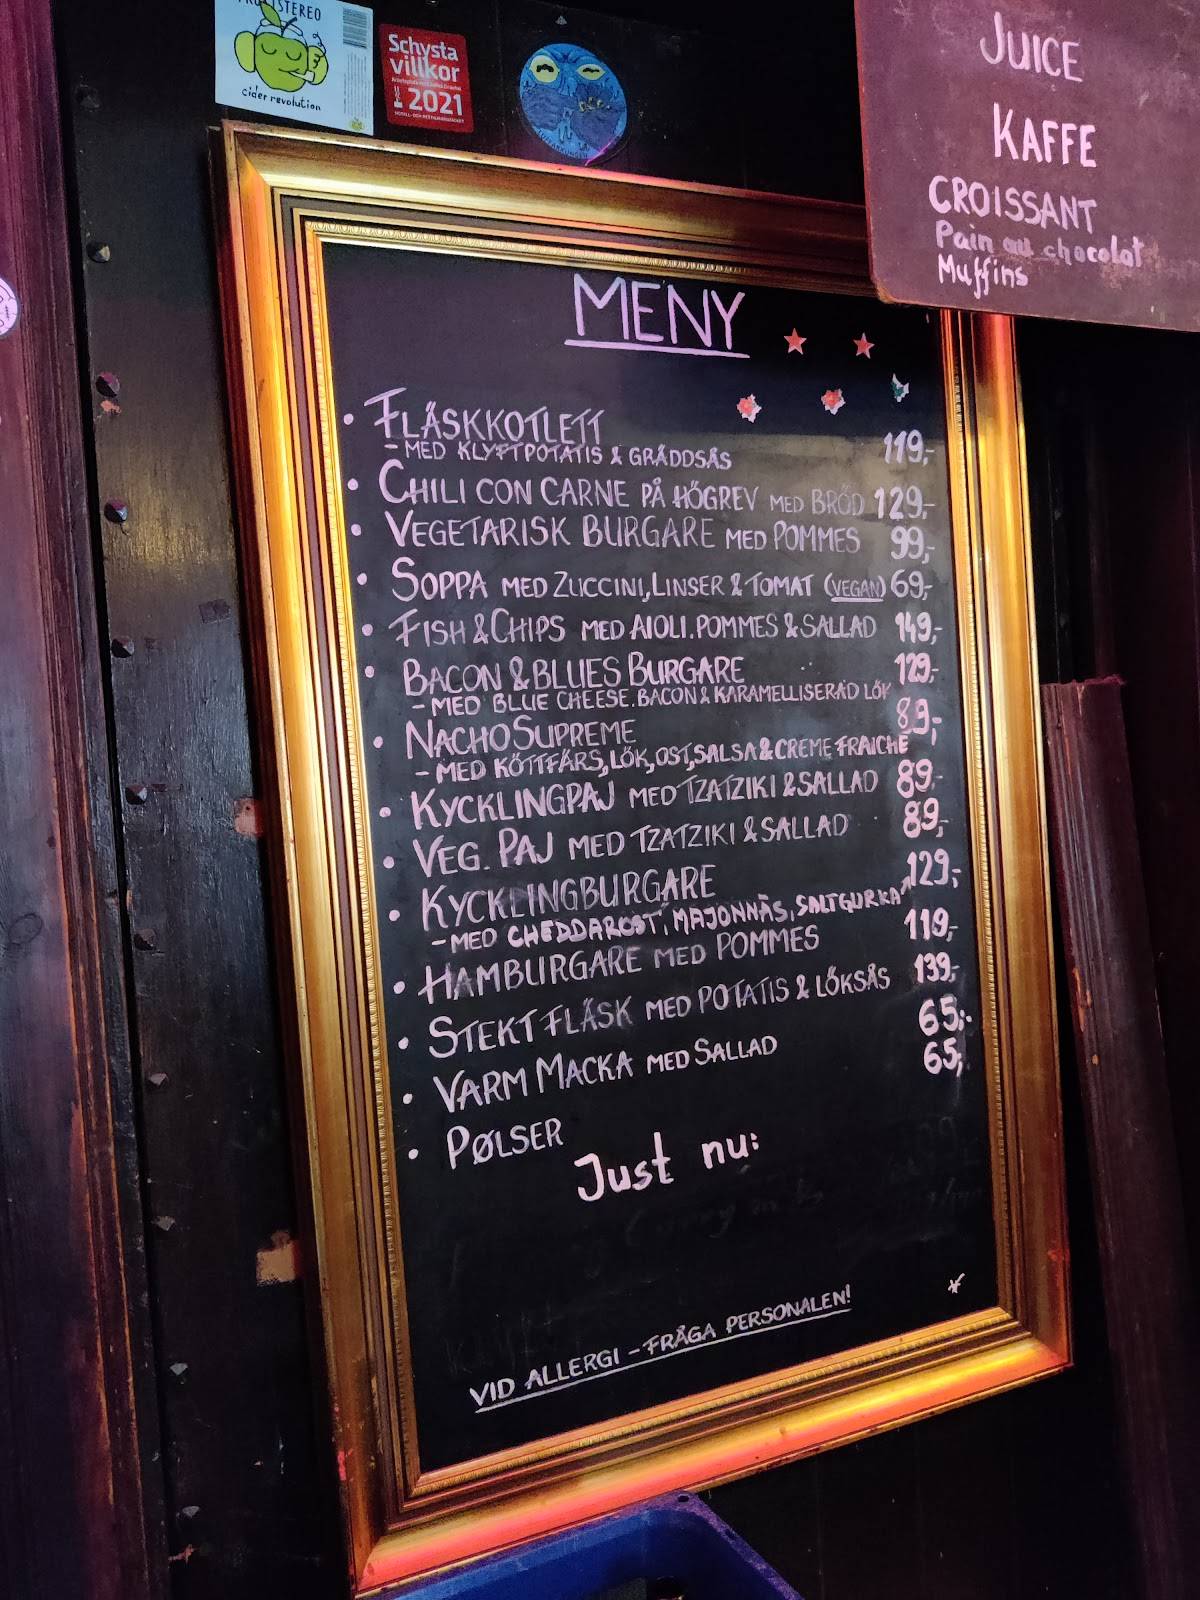 STEREO
cider revolution
Schysta
villkor
2021
JUICE
KAFFE
CROISSANT
Pain au chocolat
Muffins
MENY
• FLÄSKKOTLETT
- MED KLYFTPOTATIS & GRÄDDSÅS 119,-
• CHILI CON CARNE PÅ HÖGREV MED BRÖD 129,-
• VEGETARISK BURGARE MED POMMES 99,-
• SOPPA MED ZUCCINI, LINSER & TOMAT (VEGAN) 69,-
• FISH & CHIPS MED AIOLI. POMMES & SALLAD 149,-
• BACON & BLUES BURGARE 129,-
- MED BLUE CHEESE. BACON & KARAMELLISERAD LÖK
• NACHO SUPREME 89,-
- MED KÖTTFÄRS, LÖK, OST, SALSA & CREME FRAICHE
• KYCKLINGPAJ MED TZATZIKI & SALLAD 89,-
• VEG. PAJ MED TZATZIKI & SALLAD 89,-
• KYCKLINGBURGARE 129,-
- MED CHEDDAROST, MAJONNÄS, SALTGURKA
• HAMBURGARE MED POMMES 119,-
• STEKT FLÄSK MED POTATIS & LÖKSÅS 139,-
• VARM MACKA MED SALLAD 65,-
• PØLSER 65,-
Just nu:
VID ALLERGI - FRÅGA PERSONALEN!